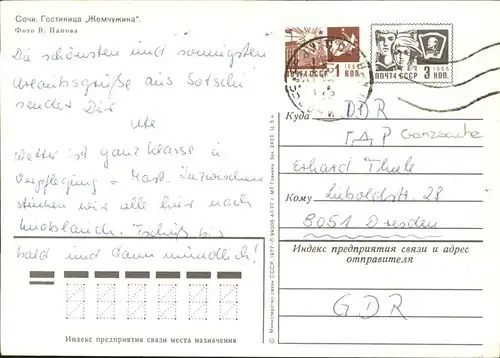 Сочи. Гостиница „Жемчужина".
Фото В. Панова
Die schönsten und sonnigsten
Urlaubsgrüße aus Sotschi
sendet Dir
Ute
Wetter ist ganz Klasse u.
Verpflegung = Mast. Inzwischen
stinken wir alle hier nach
Knoblauch. Tschüß bis
bald und dann mündlich!
Индекс предприятия связи места назначения
© Министерство связи СССР. 1977
1966
1 КОП.
ПОЧТА СССР
1966
3 КОП.
Куда DDR
ГДР Ganzsache
Erhard Thiele
Кому Lüboldstr. 28
8051 Dresden
Индекс предприятия связи и адрес
отправителя
GDR